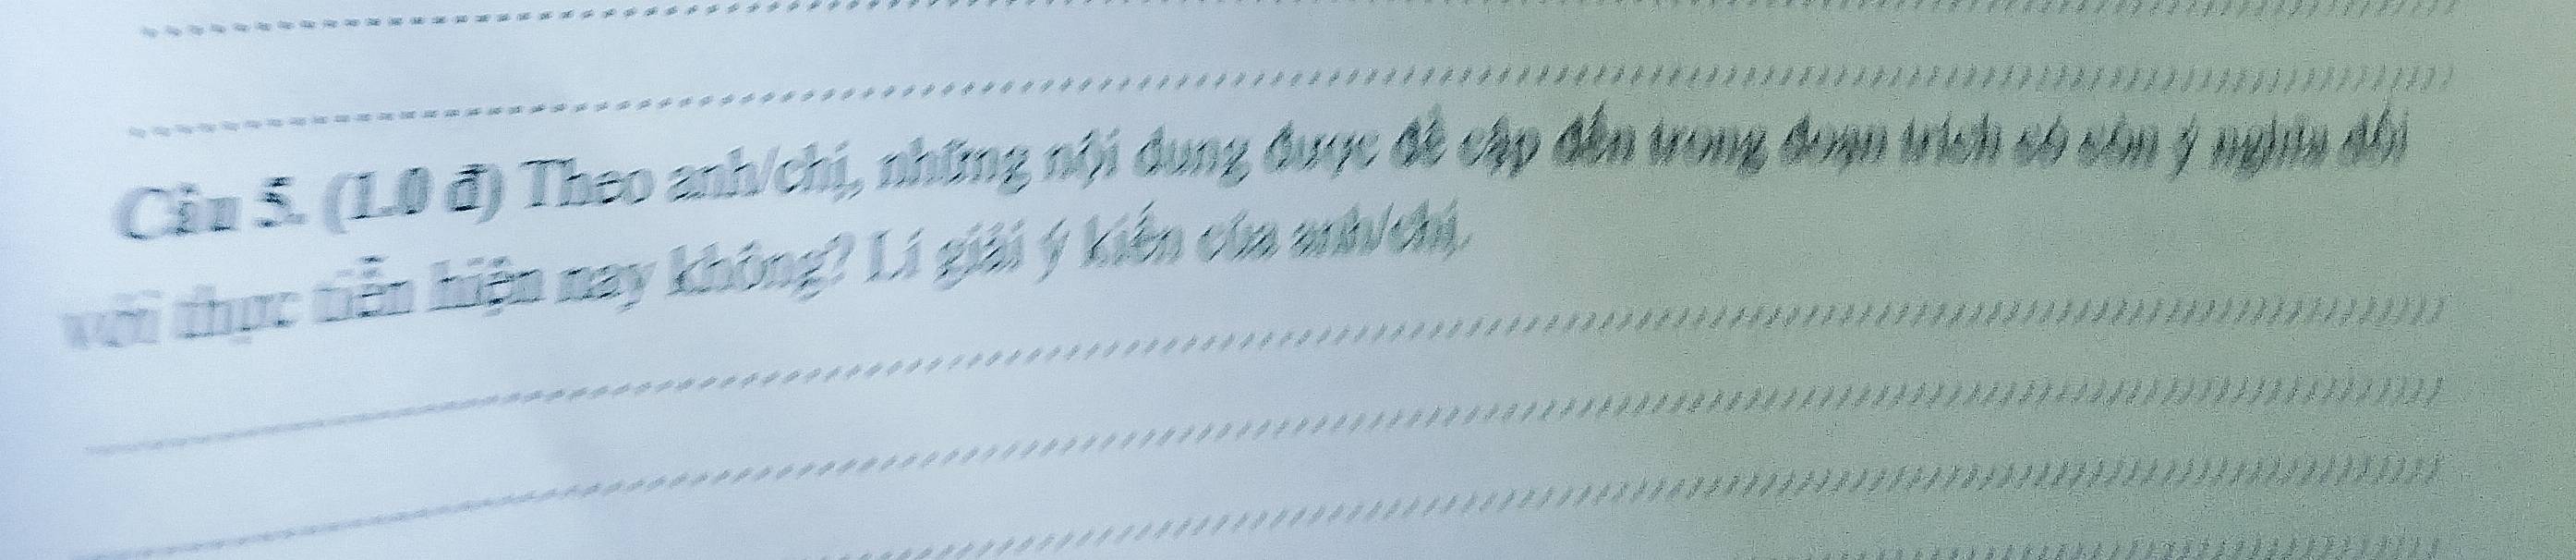 Câu 5. (1.0 đ) Theo anh/chị, những nội dung được đề cập đến trong đoạn trích có còn ý nghĩa đối
với thực tiễn hiện nay không? Lí giải ý kiến của anh/chị.